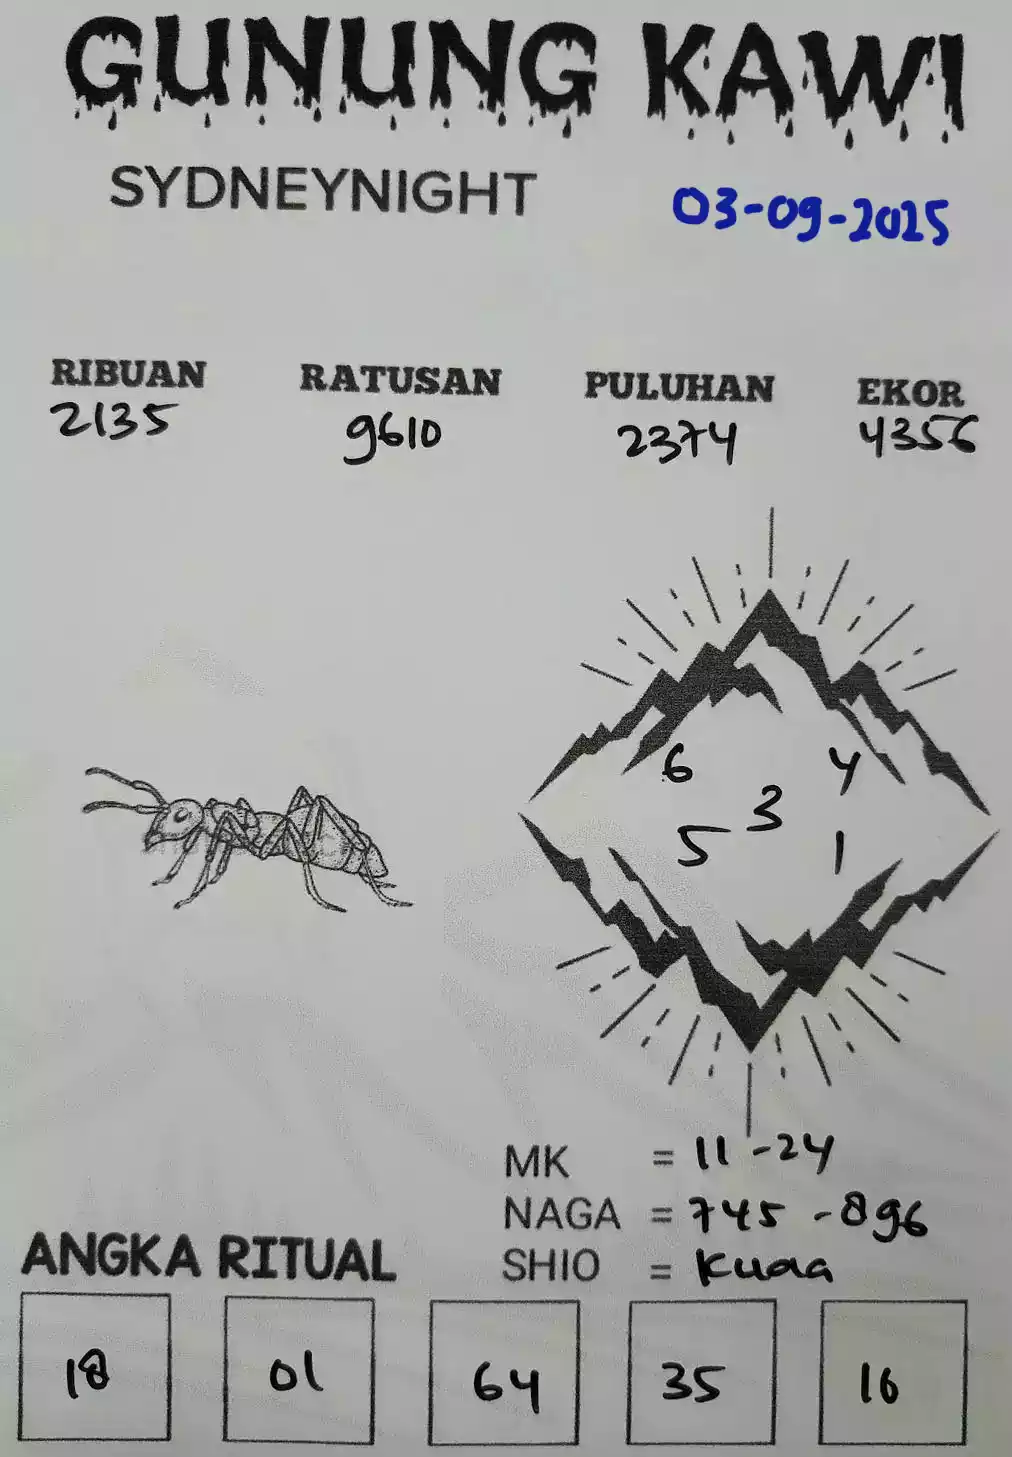 GUNUNG KAWI
SYDNEYNIGHT 03-09-2025
RIBUAN RATUSAN PULUHAN EKOR
2135 9610 2374 4356
6 4
3
5 1
MK = 11 - 24
NAGA = 745 - 896
SHIO = Kuda
ANGKA RITUAL
18 01 64 35 16